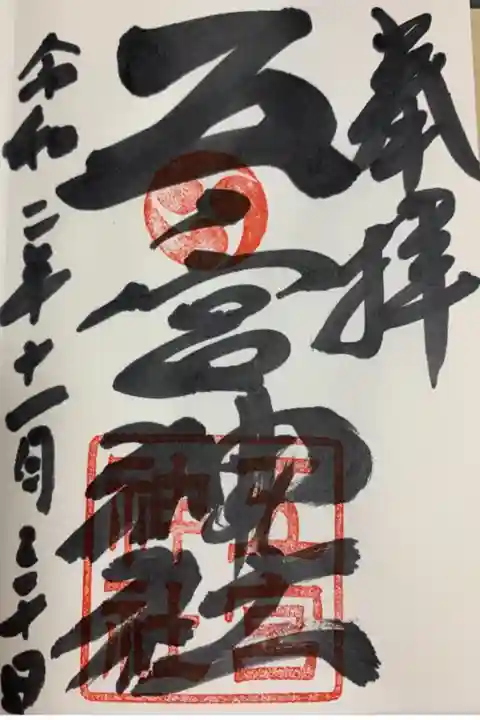 奉拝
五宮神社
五宮
神社
令和二年十一月二十日